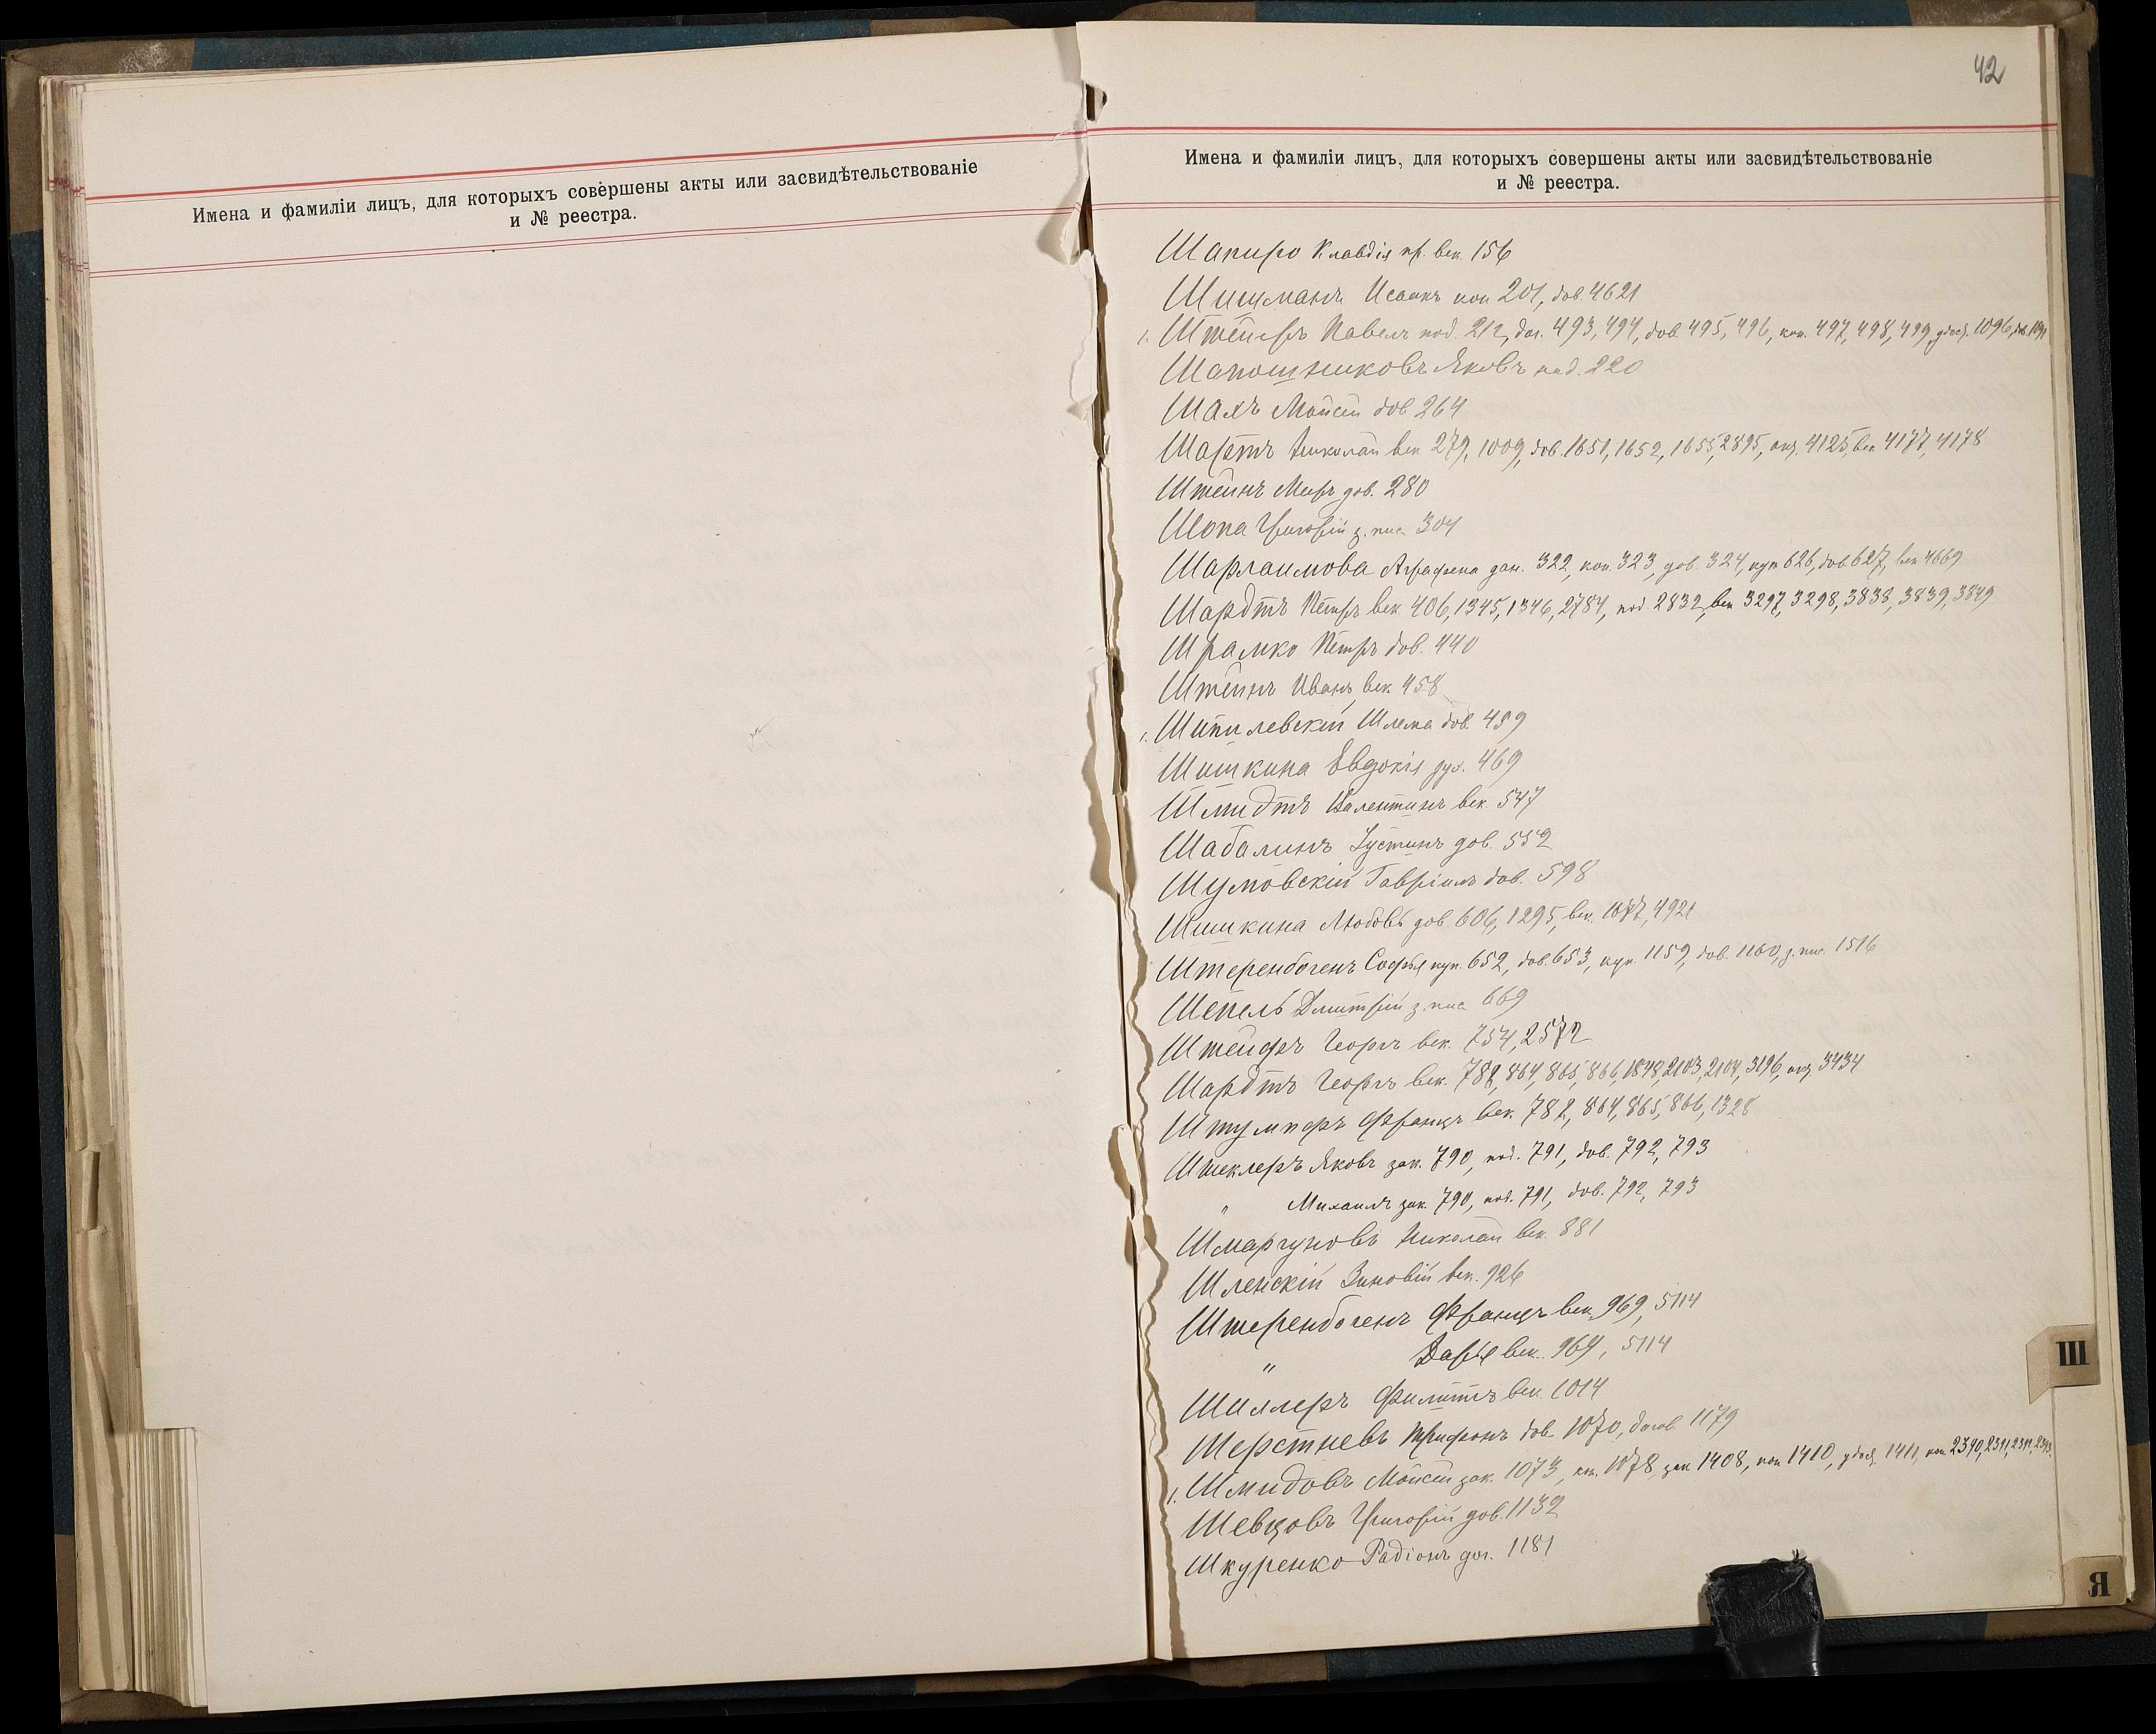 Имена и фамиліи лицъ, для которыхъ совершены акты или засвидѣтельствованіе
и № реестра.
42
Имена и фамиліи лицъ, для которыхъ совершены акты или засвидѣтельствованіе
и № реестра.
Шапиро Клавдія пр. век. 156
Шишманъ Исаакъ коп 201, дов. 4621
1. Штейфъ Павелъ под. 212, дог. 493, 494, дов. 495, 496, коп. 497, 498, 499, удост. 1096, дов. 1097
Шапошниковъ Яковъ под. 220
Шахъ Мойсей дов 264
Шартъ Николай век 279, 1009, дов. 1651, 1652, 1655, 2895, 4125, век 4177, 4178
Штейнъ Меер дов. 280
Шопа Григорій з. пис 304
Шарлаимова Аграфена дан. 322, коп. 323, дов. 324, куп 626, дов 627, век 4669
Шардтъ Петръ век 406, 1345, 1346, 2784, под. 2832, век 3297, 3298, 3838, 3839, 3849
Шрамко Петръ дов. 440
Штейнъ Иванъ век 458
1. Шпилевскій Шлема дов. 459
Шишкина Евдокія дух. 469
Шмидтъ Валентинъ век 547
Шабалинъ Іустинъ дов. 552
Шумовскій Гавріилъ дов. 598
Шишкина Любовь дов. 606, 1295, век. 1077, 4921
Штеренбогенъ Софья куп. 652, дов. 653, куп. 1159, дов. 1160, з. пис. 1516
Шепель Дмитрій з. пис 669
Штейфъ Георгъ век. 754, 2572
Шардтъ Георгъ век. 782, 864, 865, 866, 1848, 2103, 2104, 3196, 3434
Штумпфъ Францъ век. 782, 864, 865, 866, 1328
Штеклеръ Яковъ зак. 790, под. 791, дов. 792, 793
" Михаилъ зак. 790, под. 791, дов. 792, 793
Шмаргуновъ Николай век. 881
Шленскій Зиновій век. 926
Штеренбогенъ Францъ век. 969, 5114
" Дарья век. 969, 5114
Шиллеръ Филиппъ век. 1014
Шерстневъ Трифонъ дов. 1070, догов. 1179
1. Шмидовъ Мойсей зак. 1073, коп. 1078, зак 1408, коп 1410, удост. 1411, коп 2390, 2391, 2392, 2393.
Шевцовъ Григорій дов. 1132
Шкуренко Радіонъ дог. 1181
Ш
Я